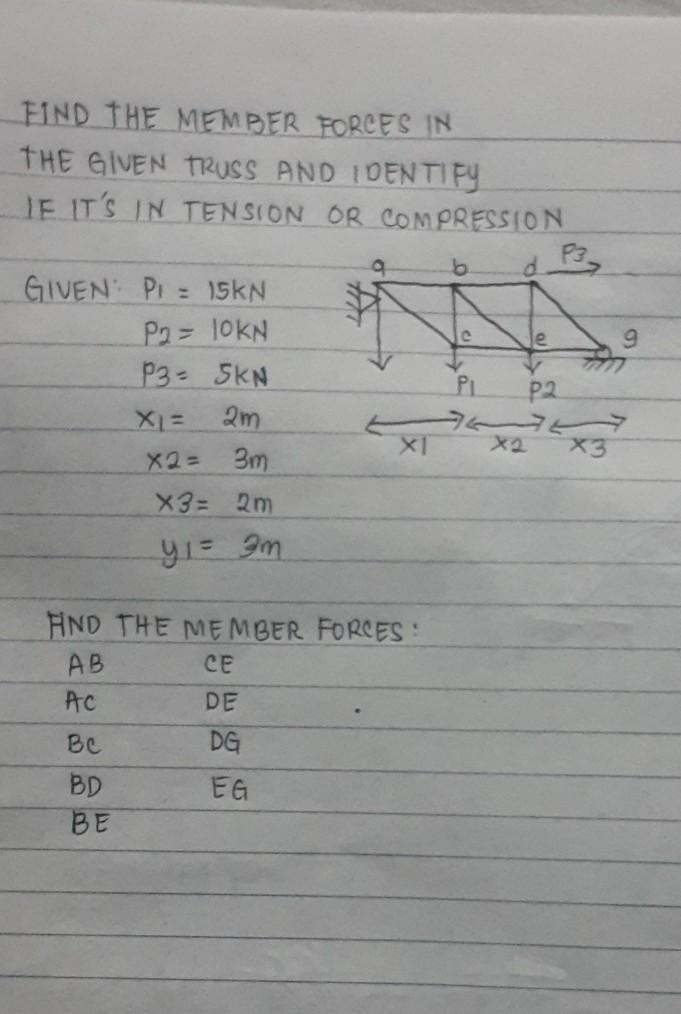 FIND THE MEMBER FORCES IN
THE GIVEN TRUSS AND IDENTIFY
IF IT'S IN TENSION OR COMPRESSION
GIVEN: P1 = 15KN
P2 = 10KN
P3 = 5KN
X1 = 2m
X2 = 3m
X3 = 2m
y1 = 3m
a b d P3
c e g
P1 P2
X1 X2 X3
FIND THE MEMBER FORCES:
AB CE
AC DE
BC DG
BD EG
BE